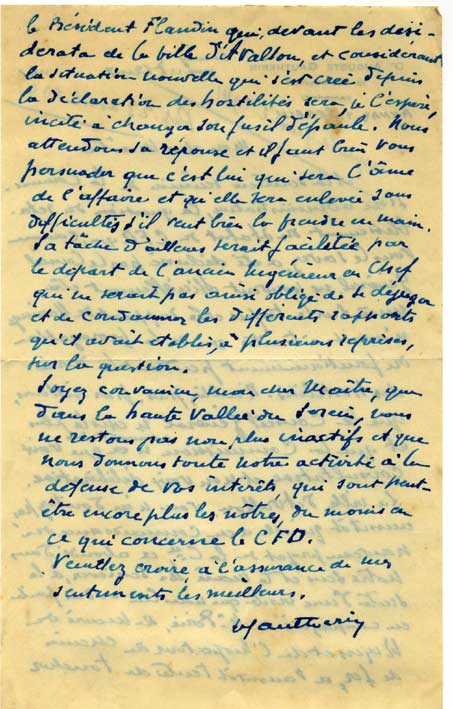 le Président Flandin qui, devant les dési-
derata de la ville d'Avallon et considérant
la situation nouvelle qui s'est créé depuis
la déclaration des hostilités sera, je l'espère,
incité à changer son fusil d'épaule. Nous
attendons sa réponse et il faut bien vous
persuader que c'est lui qui sera l'âme
de l'affaire et qu'elle sera enlevée sans
difficultés s'il veut bien la prendre en main.
Sa tâche d'ailleurs serait facilitée par
le départ de l'ancien Ingénieur en Chef
qui ne serait pas ainsi obligé de se déjuger
et de condamner les différents rapports
qu'il avait établis, à plusieurs reprises,
sur la question.
Soyez convaincu, mon cher Maître, que
dans la haute Vallée du Serein, nous
ne restons pas non plus inactifs et que
nous donnons toute notre activité à la
défense de vos intérêts, qui sont peut-
être encore plus les nôtres, du moins en
ce qui concerne le CFD.
Veuillez croire à l'assurance de mes
sentiments les meilleurs.